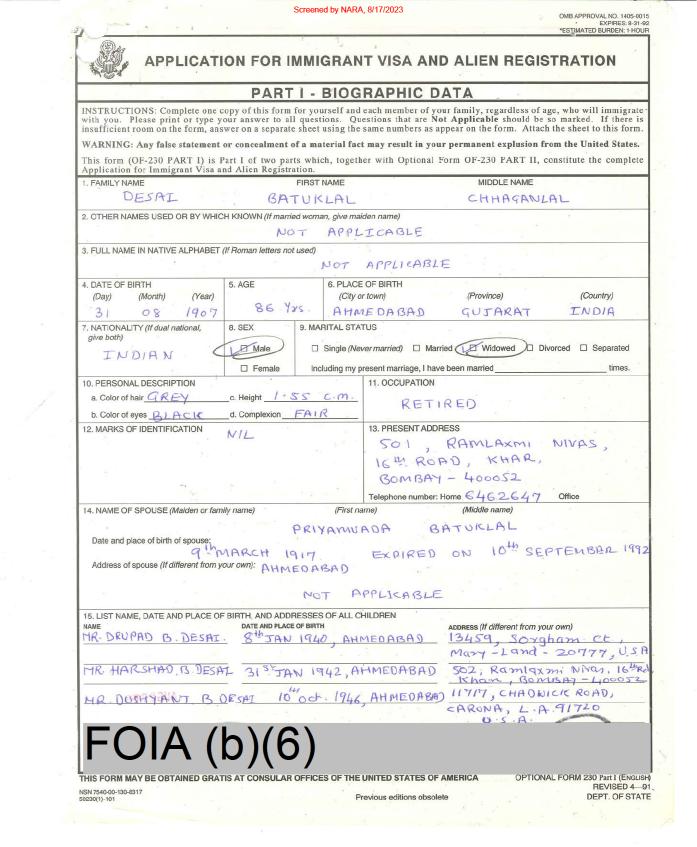 Screened by NARA, 8/17/2023
OMB APPROVAL NO. 1405-0015
EXPIRES: 8-31-92
*ESTIMATED BURDEN: 1-HOUR
APPLICATION FOR IMMIGRANT VISA AND ALIEN REGISTRATION
PART I - BIOGRAPHIC DATA
INSTRUCTIONS: Complete one copy of this form for yourself and each member of your family, regardless of age, who will immigrate
with you. Please print or type your answers to all questions. Questions that are Not Applicable should be so marked. If there is
insufficient room on the form, answer on a separate sheet using the same numbers as appear on the form. Attach the sheet to this form.
WARNING: Any false statement or concealment of a material fact may result in your permanent explusion from the United States.
This form (OF-230 PART I) is Part I of two parts which, together with Optional Form OF-230 PART II, constitute the complete
Application for Immigrant Visa and Alien Registration.
1. FAMILY NAME FIRST NAME MIDDLE NAME
DESAI BATUKLAL CHHAGANLAL
2. OTHER NAMES USED OR BY WHICH KNOWN (If married woman, give maiden name)
NOT APPLICABLE
3. FULL NAME IN NATIVE ALPHABET (If Roman letters not used)
NOT APPLICABLE
4. DATE OF BIRTH 5. AGE 6. PLACE OF BIRTH
(Day) (Month) (Year) (City or town) (Province) (Country)
31 08 1907 86 Yrs. AHMEDABAD GUJARAT INDIA
7. NATIONALITY (If dual national, 8. SEX 9. MARITAL STATUS
give both)
INDIAN Male Single (Never married) Married Widowed Divorced Separated
Female Including my present marriage, I have been married times.
10. PERSONAL DESCRIPTION 11. OCCUPATION
a. Color of hair GREY c. Height 1.55 c.m.
RETIRED
b. Color of eyes BLACK d. Complexion FAIR
12. MARKS OF IDENTIFICATION NIL 13. PRESENT ADDRESS
501, RAMLAXMI NIVAS,
16th ROAD, KHAR,
BOMBAY - 400052
Telephone number: Home 6462647 Office
14. NAME OF SPOUSE (Maiden or family name) (First name) (Middle name)
PRIYAMVADA BATUKLAL
Date and place of birth of spouse:
9th MARCH 1917 EXPIRED ON 10th SEPTEMBER 1992
Address of spouse (If different from your own): AHMEDABAD
NOT APPLICABLE
15. LIST NAME, DATE AND PLACE OF BIRTH, AND ADDRESSES OF ALL CHILDREN
NAME DATE AND PLACE OF BIRTH ADDRESS (If different from your own)
MR. DRUPAD B. DESAI. 8th JAN 1940, AHMEDABAD 13459, Sorgham Ct,
Mary-Land - 20777, U.S.A
MR. HARSHAD. B. DESAI 31st JAN 1942, AHMEDABAD 502, Ramlaxmi Nivas, 16th Rd
Khar, BOMBAY - 400052
MR. DUSHYANT B DESAI 10th Oct. 1946, AHMEDABAD 11717, CHADWICK ROAD,
CARONA, L.A. 91720
U.S.A
FOIA (b)(6)
THIS FORM MAY BE OBTAINED GRATIS AT CONSULAR OFFICES OF THE UNITED STATES OF AMERICA OPTIONAL FORM 230 Part I (ENGLISH)
REVISED 4-91
NSN 7540-00-130-8317
50230(1)-101 Previous editions obsolete DEPT. OF STATE